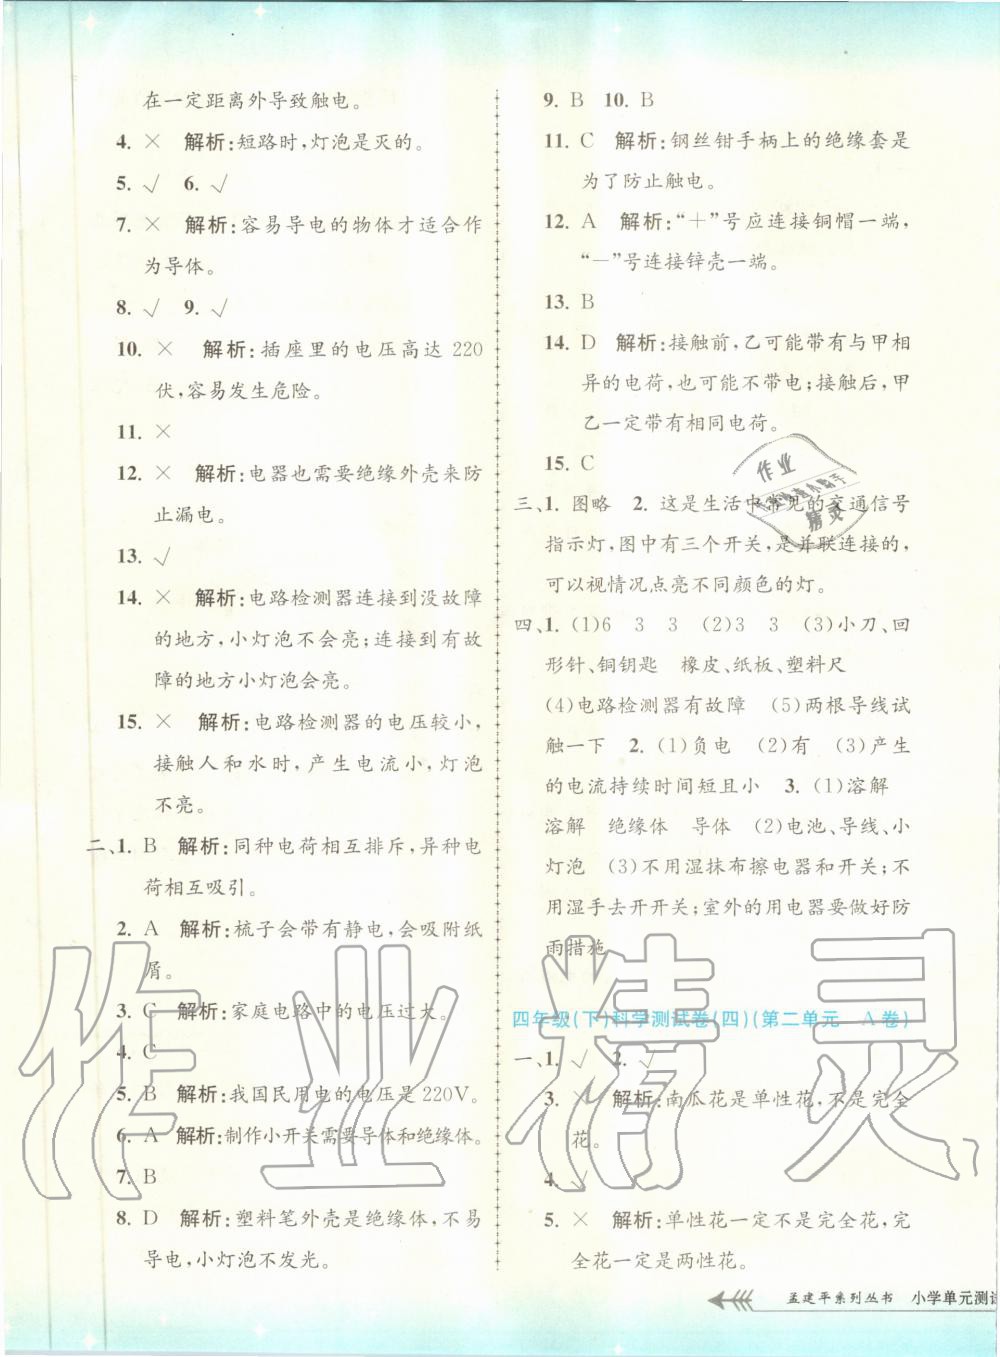 在一定距离外导致触电。
4. × 解析:短路时,灯泡是灭的。
5. √ 6. √
7. × 解析:容易导电的物体才适合作
为导体。
8. √ 9. √
10. × 解析:插座里的电压高达 220
伏,容易发生危险。
11. ×
12. × 解析:电器也需要绝缘外壳来防
止漏电。
13. √
14. × 解析:电路检测器连接到没故障
的地方,小灯泡不会亮;连接到有故
障的地方小灯泡会亮。
15. × 解析:电路检测器的电压较小,
接触人和水时,产生电流小,灯泡
不亮。
二、1. B 解析:同种电荷相互排斥,异种电
荷相互吸引。
2. A 解析:梳子会带有静电,会吸附纸
屑。
3. C 解析:家庭电路中的电压过大。
4. C
5. B 解析:我国民用电的电压是 220V。
6. A 解析:制作小开关需要导体和绝缘体。
7. B
8. D 解析:塑料笔外壳是绝缘体,不易
导电,小灯泡不发光。
9. B 10. B
11. C 解析:钢丝钳手柄上的绝缘套是
为了防止触电。
12. A 解析:“+”号应连接铜帽一端,
“-”号连接锌壳一端。
13. B
14. D 解析:接触前,乙可能带有与甲相
异的电荷,也可能不带电;接触后,甲
乙一定带有相同电荷。
15. C
三、1. 图略 2. 这是生活中常见的交通信号
指示灯,图中有三个开关,是并联连接的,
可以视情况点亮不同颜色的灯。
四、1. (1)6 3 3 (2)3 3 (3)小刀、回
形针、铜钥匙 橡皮、纸板、塑料尺
(4)电路检测器有故障 (5)两根导线试
触一下 2. (1)负电 (2)有 (3)产生
的电流持续时间短且小 3. (1)溶解
溶解 绝缘体 导体 (2)电池、导线、小
灯泡 (3)不用湿抹布擦电器和开关;不
用湿手去开开关;室外的用电器要做好防
雨措施
四年级(下)科学测试卷(四)(第二单元 A卷)
一、1. √ 2. √
3. × 解析:南瓜花是单性花,不是完全
花。
4. √
5. × 解析:单性花一定不是完全花,完
全花一定是两性花。
孟建平系列丛书 小学单元测试
7
作业
精灵
作业精灵